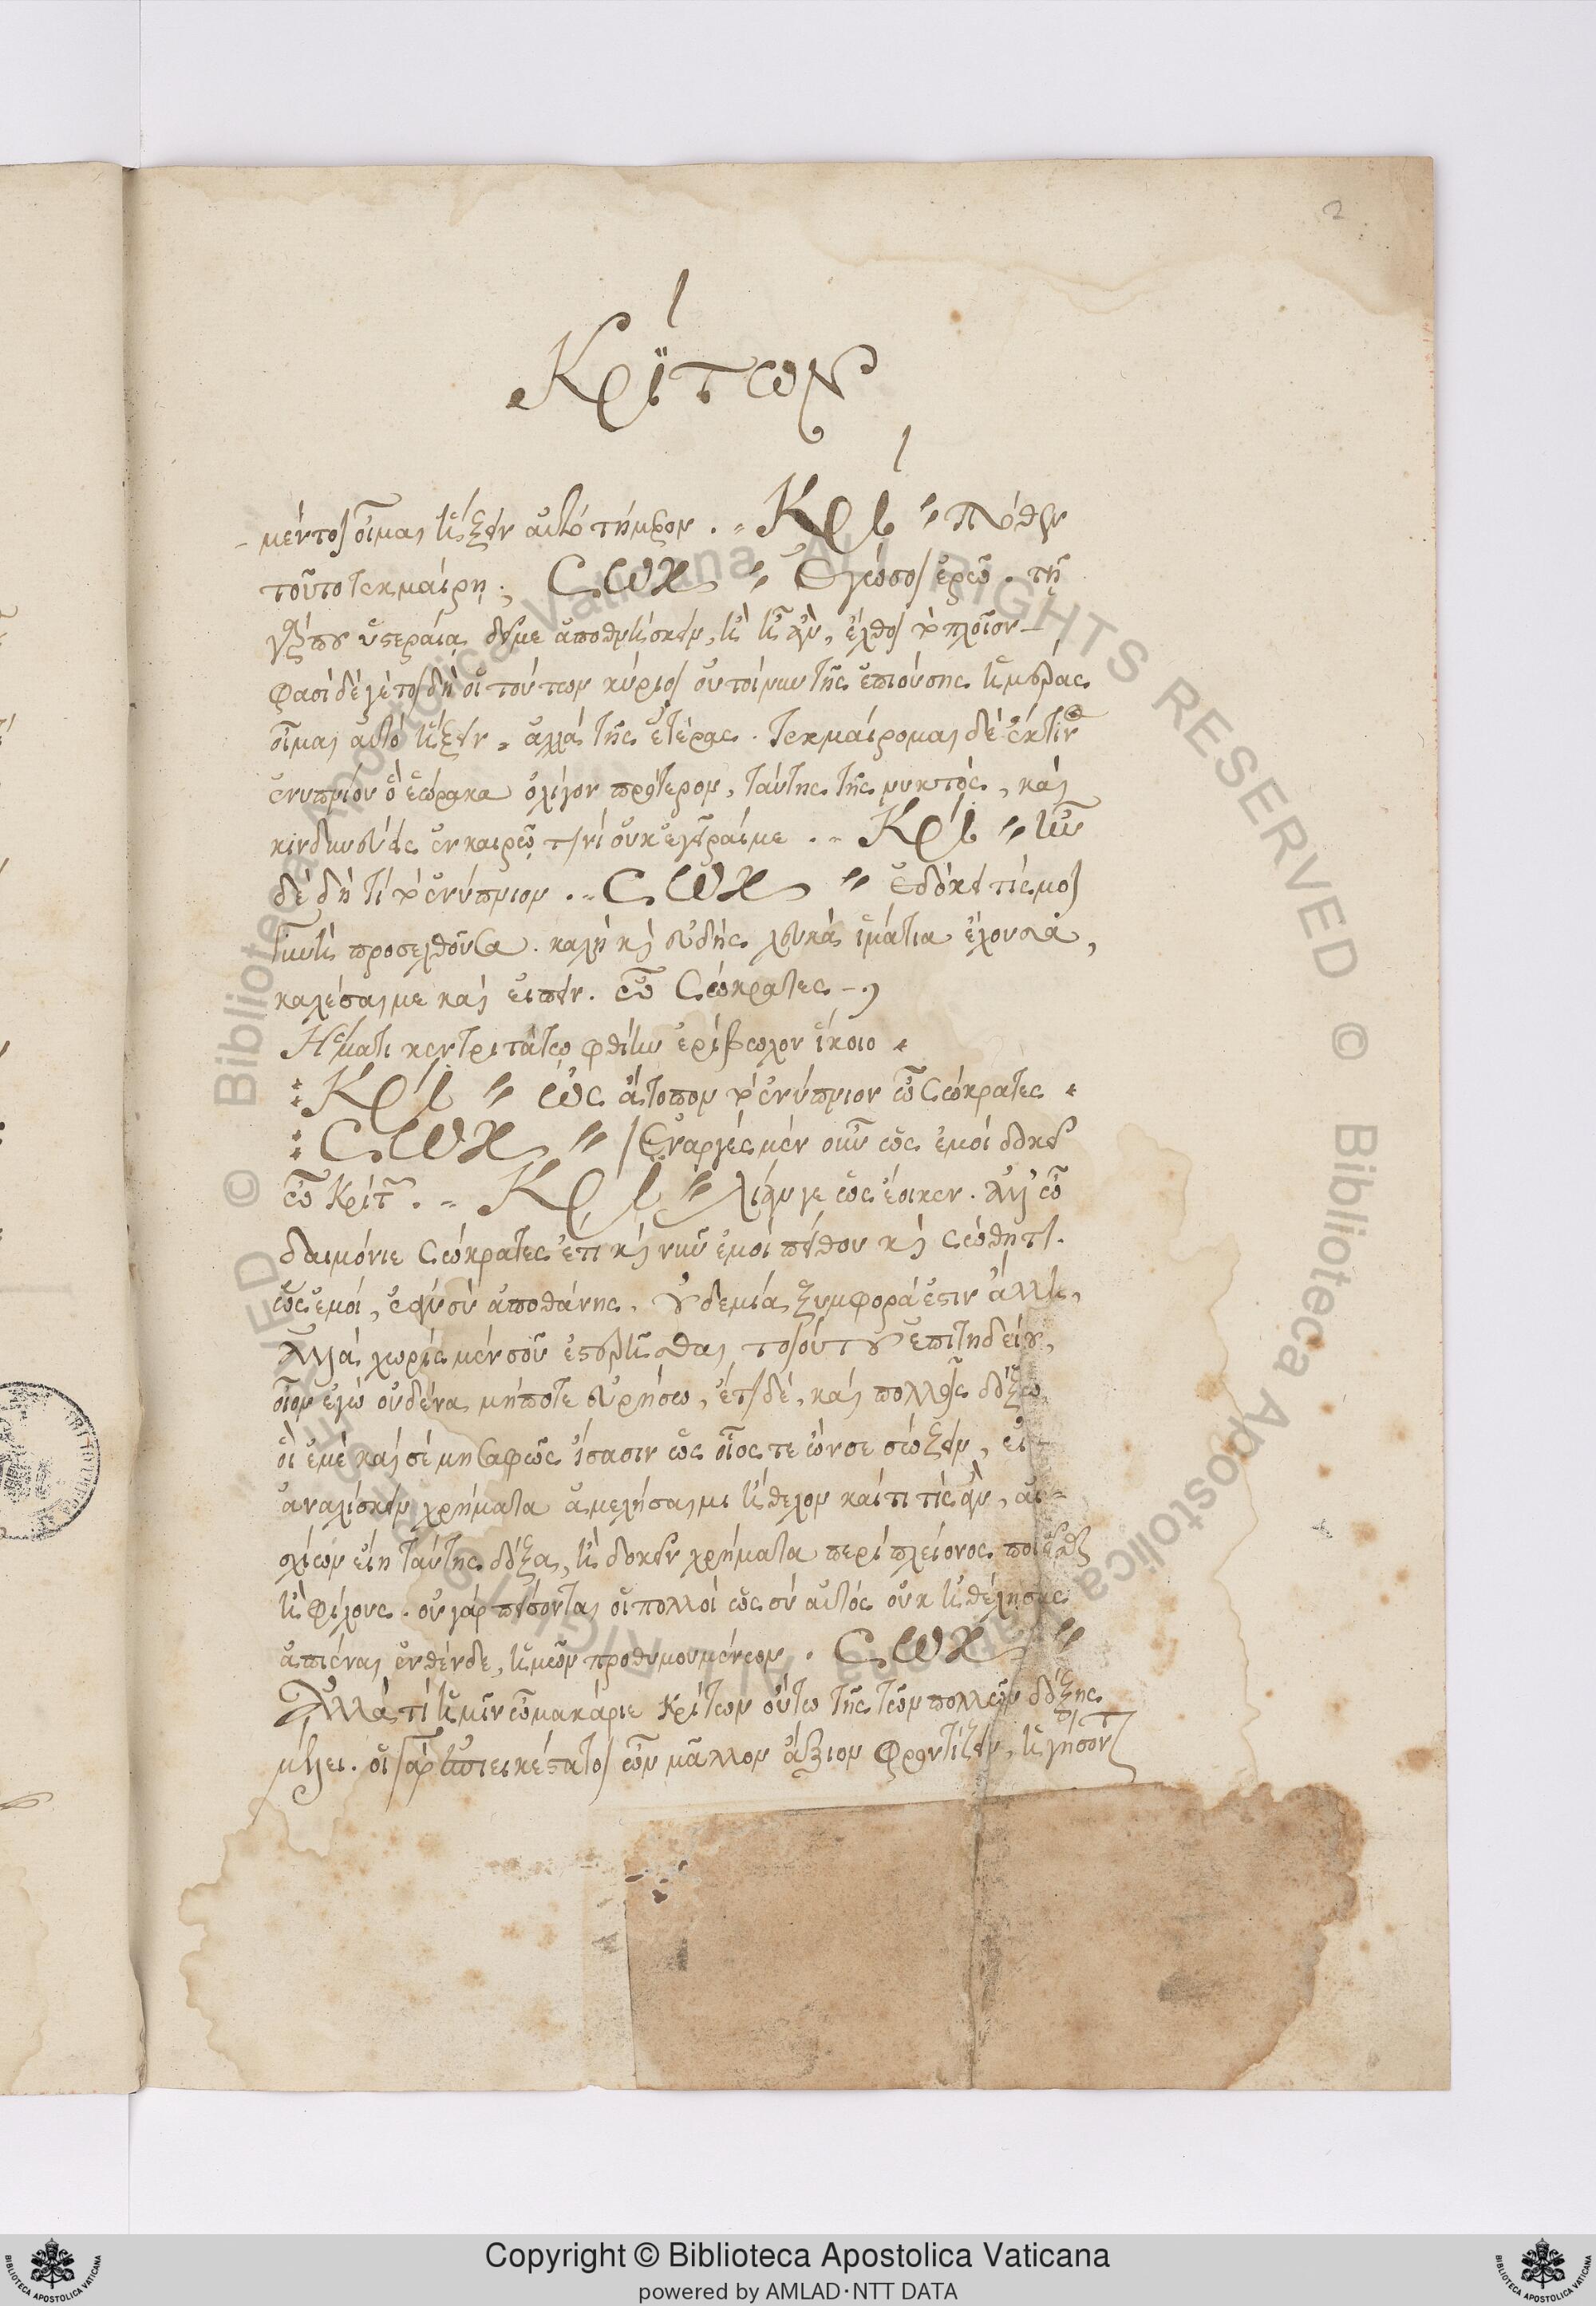 2
Κρίτων
μέντοι οἶμαι ἥξειν αὐτό τήμερον. Κρί πόθεν
τοῦτο τεκμαίρη; Σωκ Ἐγώ σοι ἐρῶ. τῇ
γάρ που ὑστεραία δεῖ με ἀποθνήσκειν, ἢ ᾗ ἂν, ἔλθοι τὸ πλοῖον
φασί δέ γέ τοι δὴ οἱ τούτων κύριοι οὐ τοίνυν τῆς ἐπιούσης ἡμέρας
οἶμαι αὐτό ἥξειν, ἀλλά τῆς ἑτέρας. τεκμαίρομαι δὲ ἔκ τινος
ἐνυπνίου ὃ ἑώρακα ὀλίγον πρότερον, ταύτης τῆς νυκτός, καὶ
κινδυνεύεις ἐν καιρῷ τινί οὐκ ἐγεῖραί με. Κρί ἦν
δὲ δὴ τί τὸ ἐνύπνιον. Σωκ ἐδόκει τίς μοι
γυνή προσελθοῦσα. καλή καὶ εὐειδής λευκὰ ἱμάτια ἔχουσα,
καλέσαι με καὶ εἰπεῖν. ὦ Σώκρατες
Ἤματί κεν τριτάτῳ φθίην ἐρίβωλον ἵκοιο
Κρί ὡς ἄτοπον τὸ ἐνύπνιον ὦ Σώκρατες
Σωκ Ἐναργές μέν οὖν ὥς ἐμοί δοκεῖ
ὦ Κρίτων. Κρί λίαν γε ὡς ἔοικεν. ἀλλ' ὦ
δαιμόνιε Σώκρατες ἔτι καὶ νῦν ἐμοί πείθου καὶ σώθητι.
ὡς ἐμοί, ἐὰν σὺ ἀποθάνης, οὐδεμία ξυμφορά ἐστιν ἄλλη,
ἀλλά χωρίς μέν σοῦ ἐστερῆσθαι τοιούτου ἐπιτηδείου,
οἷον ἐγώ οὐδένα μήποτε εὑρήσω, ἔτι δὲ, καὶ πολλοῖς δόξω
οἳ ἐμέ καὶ σέ μὴ σαφῶς ἴσασιν ὡς οἷός τε ὤν σε σώζειν, εἰ
ἀναλίσκειν χρήματα ἀμελήσαιμι ἤθελον καί τι τίς ἂν, αἰ-
σχίων εἴη ταύτης δόξα, ἢ δοκεῖν χρήματα περί πλείονος ποιεῖσθαι
ἢ φίλους. οὐ γάρ πείσονται οἱ πολλοί ὡς σύ αὐτός οὐκ ἠθέλησας
ἀπιέναι ἐνθένδε, ἡμῶν προθυμουμένων. Σωκ
Ἀλλά τί ἡμῖν ὦ μακάριε Κρίτων οὕτω τῆς τῶν πολλῶν δόξης
μέλει. οἱ γάρ ἐπιεικέστατοι ὧν μᾶλλον ἄξιον φροντίζειν, ἡγήσονται
© Biblioteca Apostolica Vaticana ALL RIGHTS RESERVED
Copyright © Biblioteca Apostolica Vaticana
powered by AMLAD·NTT DATA